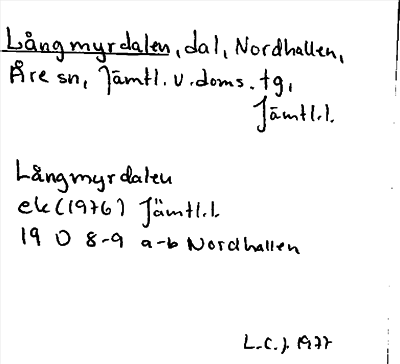 Långmyrdalen, dal, Nordhallen,
Åre sn, Jämtl. v. doms. tg,
Jämtl.l.
Långmyrdalen
ek (1976) Jämtl.l.
19 D 8-9 a-b Nordhallen
L.C.J. 1977